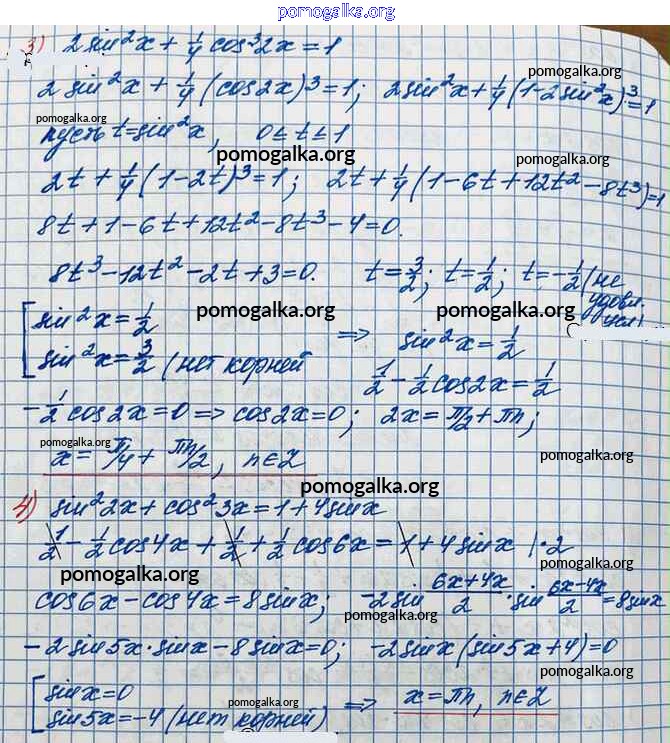 pomogalka.org
3) 2 sin²x + 1/4 cos³2x = 1
2 sin²x + 1/4 (cos2x)³ = 1; 2sin²x + 1/4 (1-2sin²x)³ = 1
pomogalka.org
pomogalka.org
пусть t = sin²x, 0 ≤ t ≤ 1
pomogalka.org
pomogalka.org
2t + 1/4 (1-2t)³ = 1; 2t + 1/4 (1-6t+12t²-8t³) = 1
8t + 1 - 6t + 12t² - 8t³ - 4 = 0.
8t³ - 12t² - 2t + 3 = 0. t = 3/2; t = 1/2; t = -1/2 (не удовл. усл)
pomogalka.org
pomogalka.org
[ sin²x = 1/2
sin²x = 3/2 (нет корней => sin²x = 1/2
1/2 - 1/2 cos2x = 1/2
-1/2 cos2x = 0 => cos2x = 0; 2x = π/2 + πn;
pomogalka.org
pomogalka.org
x = π/4 + πn/2, n ∈ Z
pomogalka.org
4) sin²2x + cos²3x = 1 + 4sinx
1/2 - 1/2 cos4x + 1/2 + 1/2 cos6x = 1 + 4 sinx | · 2
pomogalka.org
pomogalka.org
cos6x - cos4x = 8 sinx; -2 sin (6x+4x)/2 · sin (6x-4x)/2 = 8 sinx
pomogalka.org
-2 sin5x · sinx - 8 sinx = 0; -2 sinx (sin5x + 4) = 0
pomogalka.org
pomogalka.org
[ sinx = 0
sin5x = -4 (нет корней) => x = πn, n ∈ Z
pomogalka.org
pomogalka.org